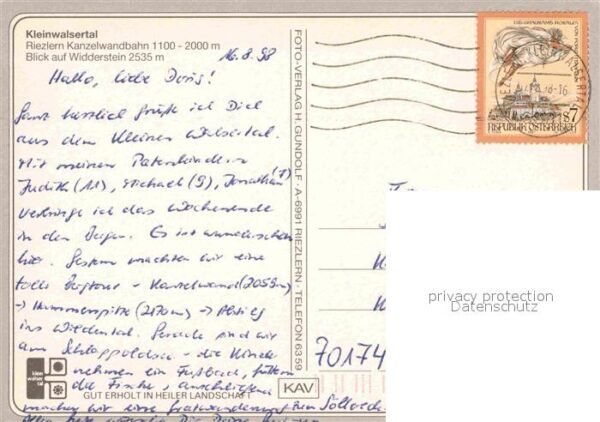 Kleinwalsertal
Riezlern Kanzelwandbahn 1100 - 2000 m
Blick auf Widderstein 2535 m
16.8.98
Hallo, liebe Doris!
Ganz herzlich grüße ich Dich
aus dem Kleinen Walsertal.
Mit meinen Patenkindern
Judith (11), Michael (9), Jonathan (7)
verbringe ich das Wochenende
in den Bergen. Es ist wunderschön
hier. Gestern machten wir eine
tolle Bergtour - Kanzelwand (2059m)
→ Hammerspitze (2170m) → Abstieg
ins Wildental. Gerade sind wir
am Schlappoldsee - die Kinder
nehmen ein Fußbad, füttern
die Fische, anschließend
machen wir eine Gratwanderung zum Söllereck
GUT ERHOLT IN HEILER LANDSCHAFT
KAV
FOTO-VERLAG H. GUNDOLF · A-6991 RIEZLERN · TELEFON 6359
S 7
REPUBLIK ÖSTERREICH
70174
privacy protection
Datenschutz